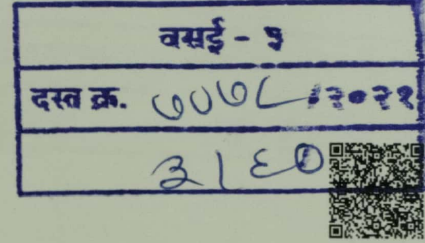 वसई - ३
दस्त क्र. ७०७८ /२०२१
३ / ६०